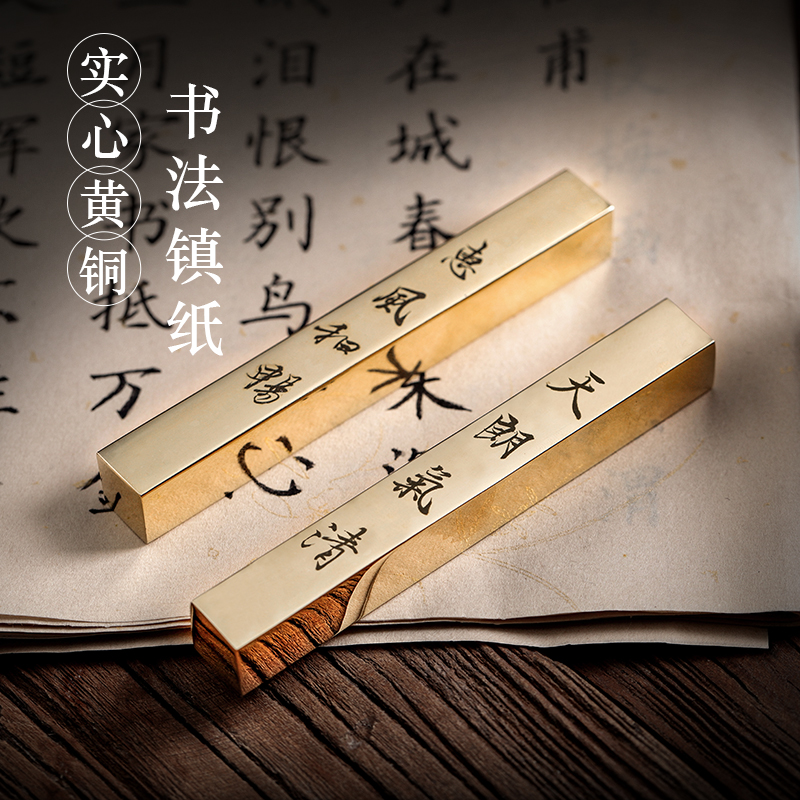 书法镇纸
实心黄铜
惠風和暢
天朗氣清
甫
在城春
泪恨别鸟
心
书抵万